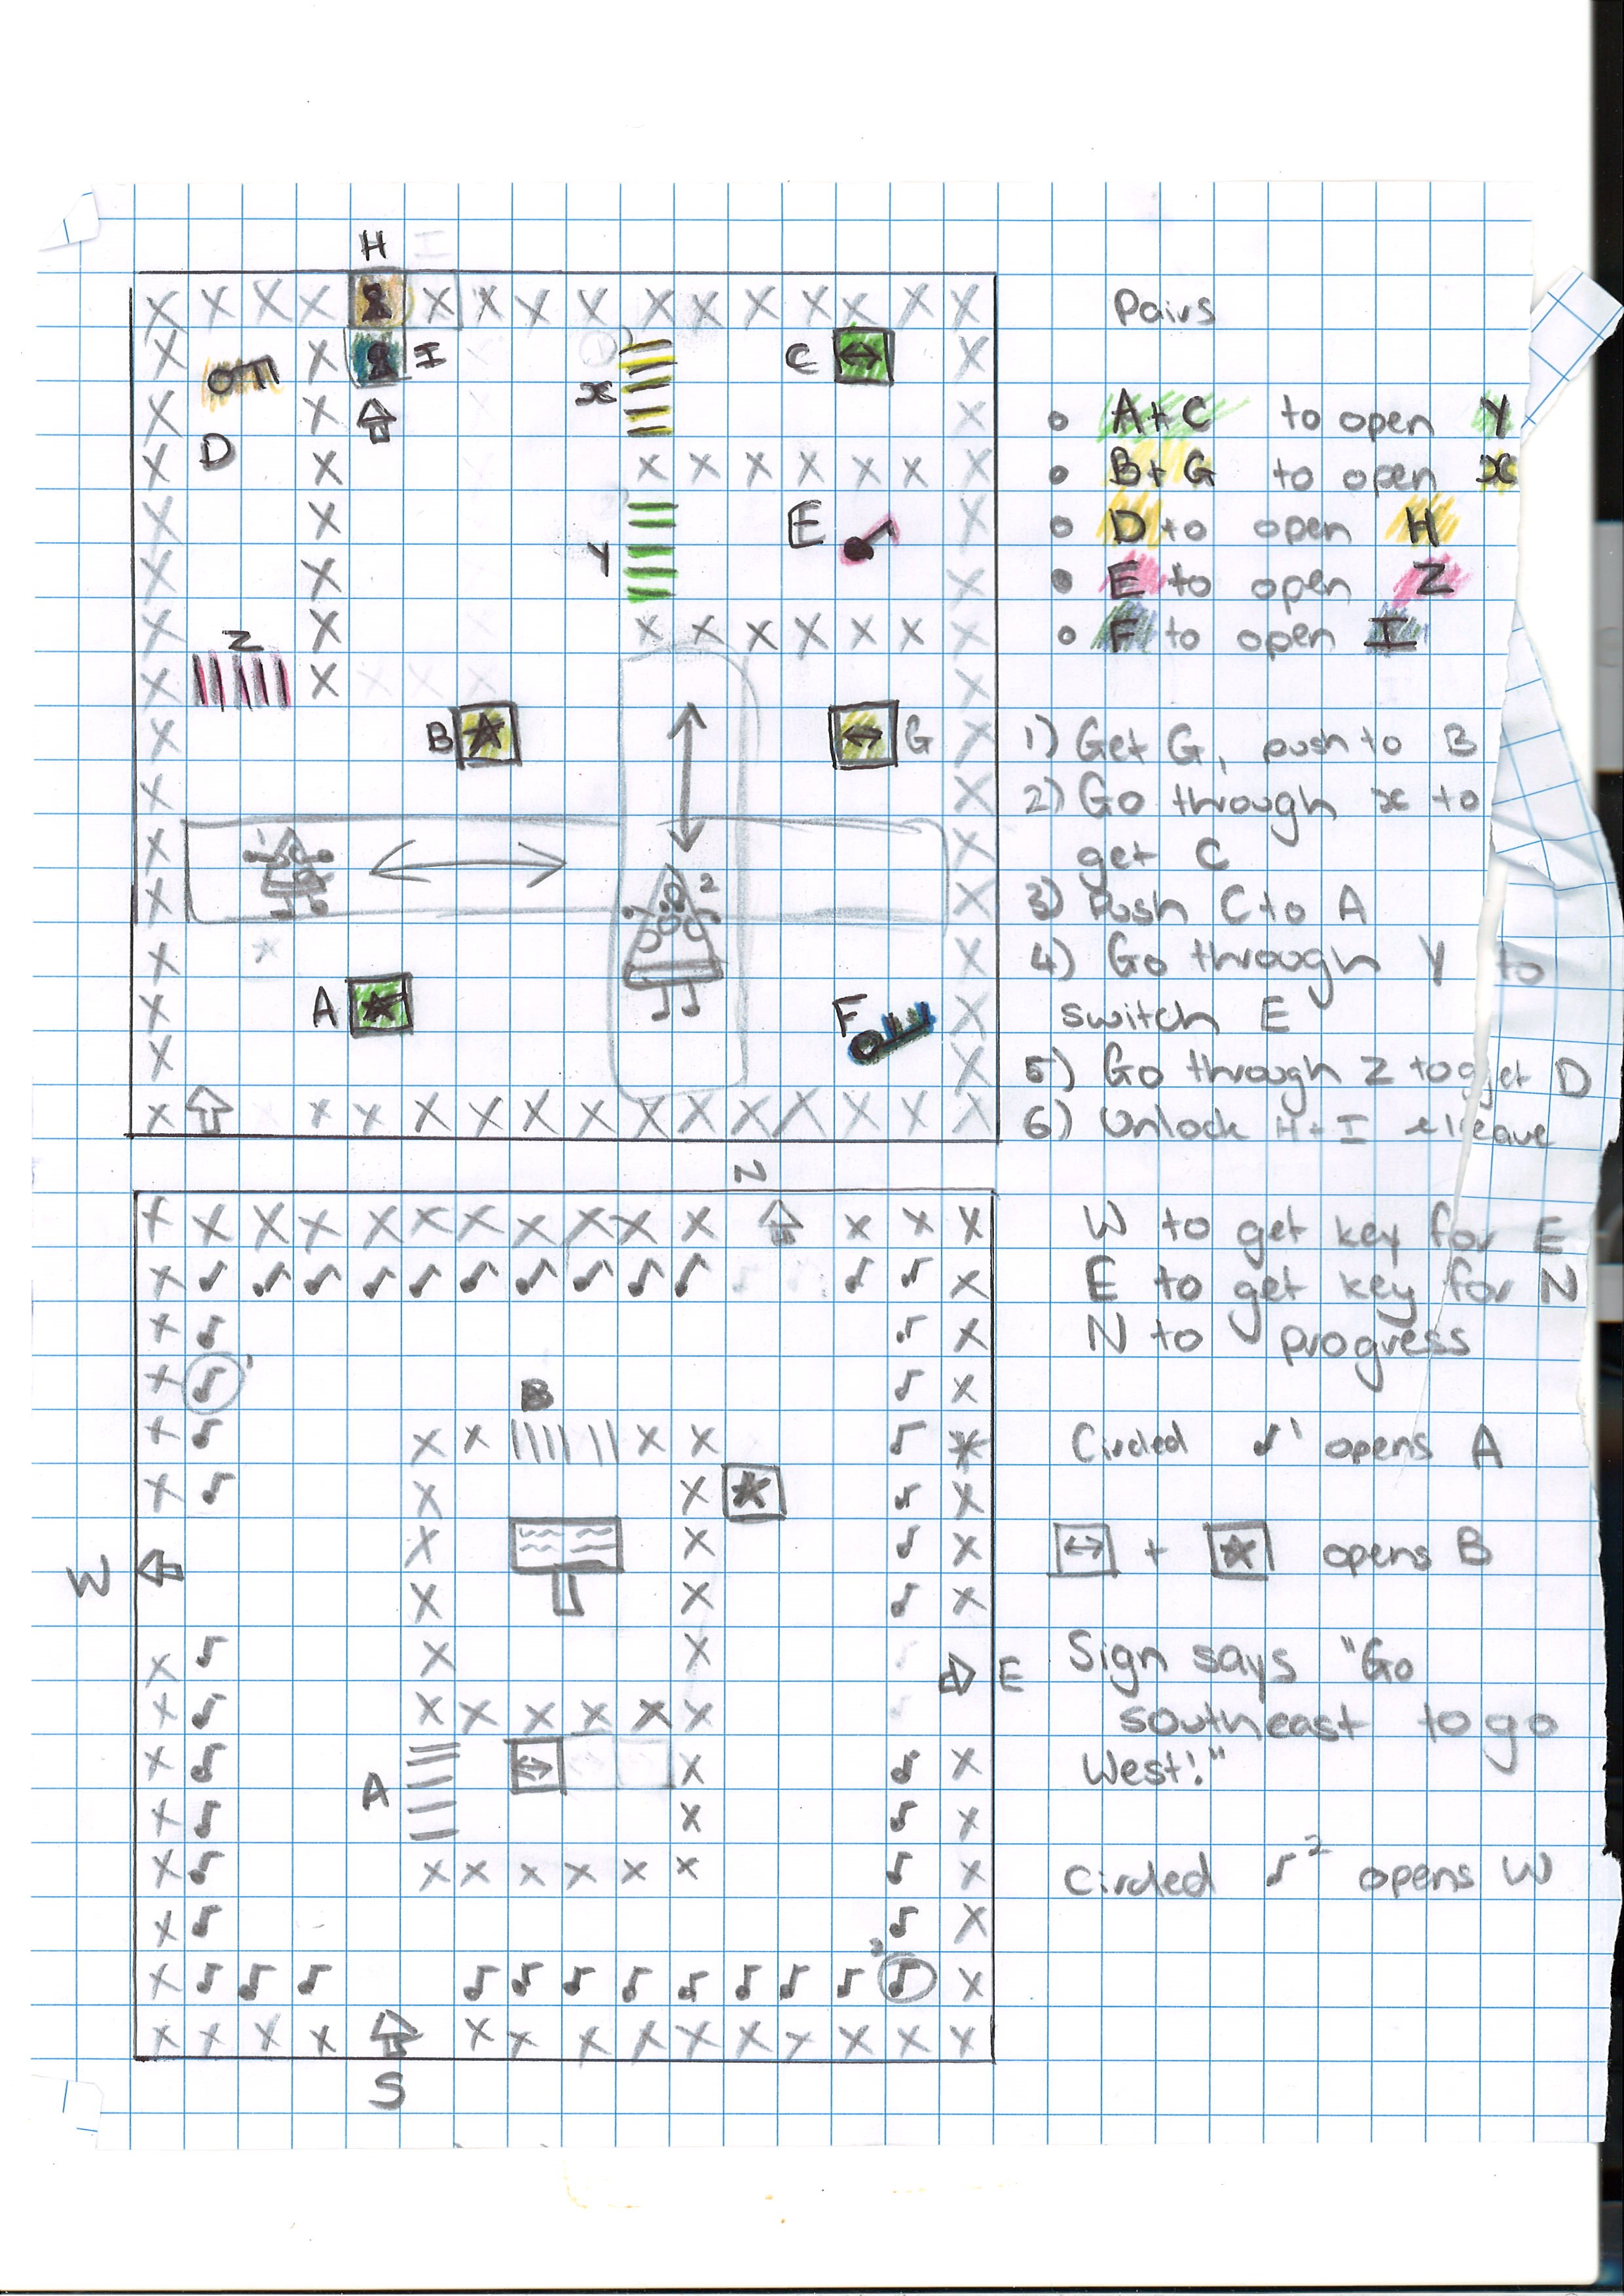 H I
I
C
x
D
E
Y
Z
B
G
1
2
A
F
Pairs
A+C to open Y
B+G to open x
D to open H
E to open Z
F to open I
1) Get G, push to B
2) Go through x to
get C
3) Push C to A
4) Go through Y to
switch E
5) Go through Z to get D
6) Unlock H+I & leave
N
1
B
W
E
A
2
S
W to get key for E
E to get key for N
N to progress
Circled ♪¹ opens A
↔ + ★ opens B
Sign says "Go
southeast to go
West!"
Circled ♪² opens W